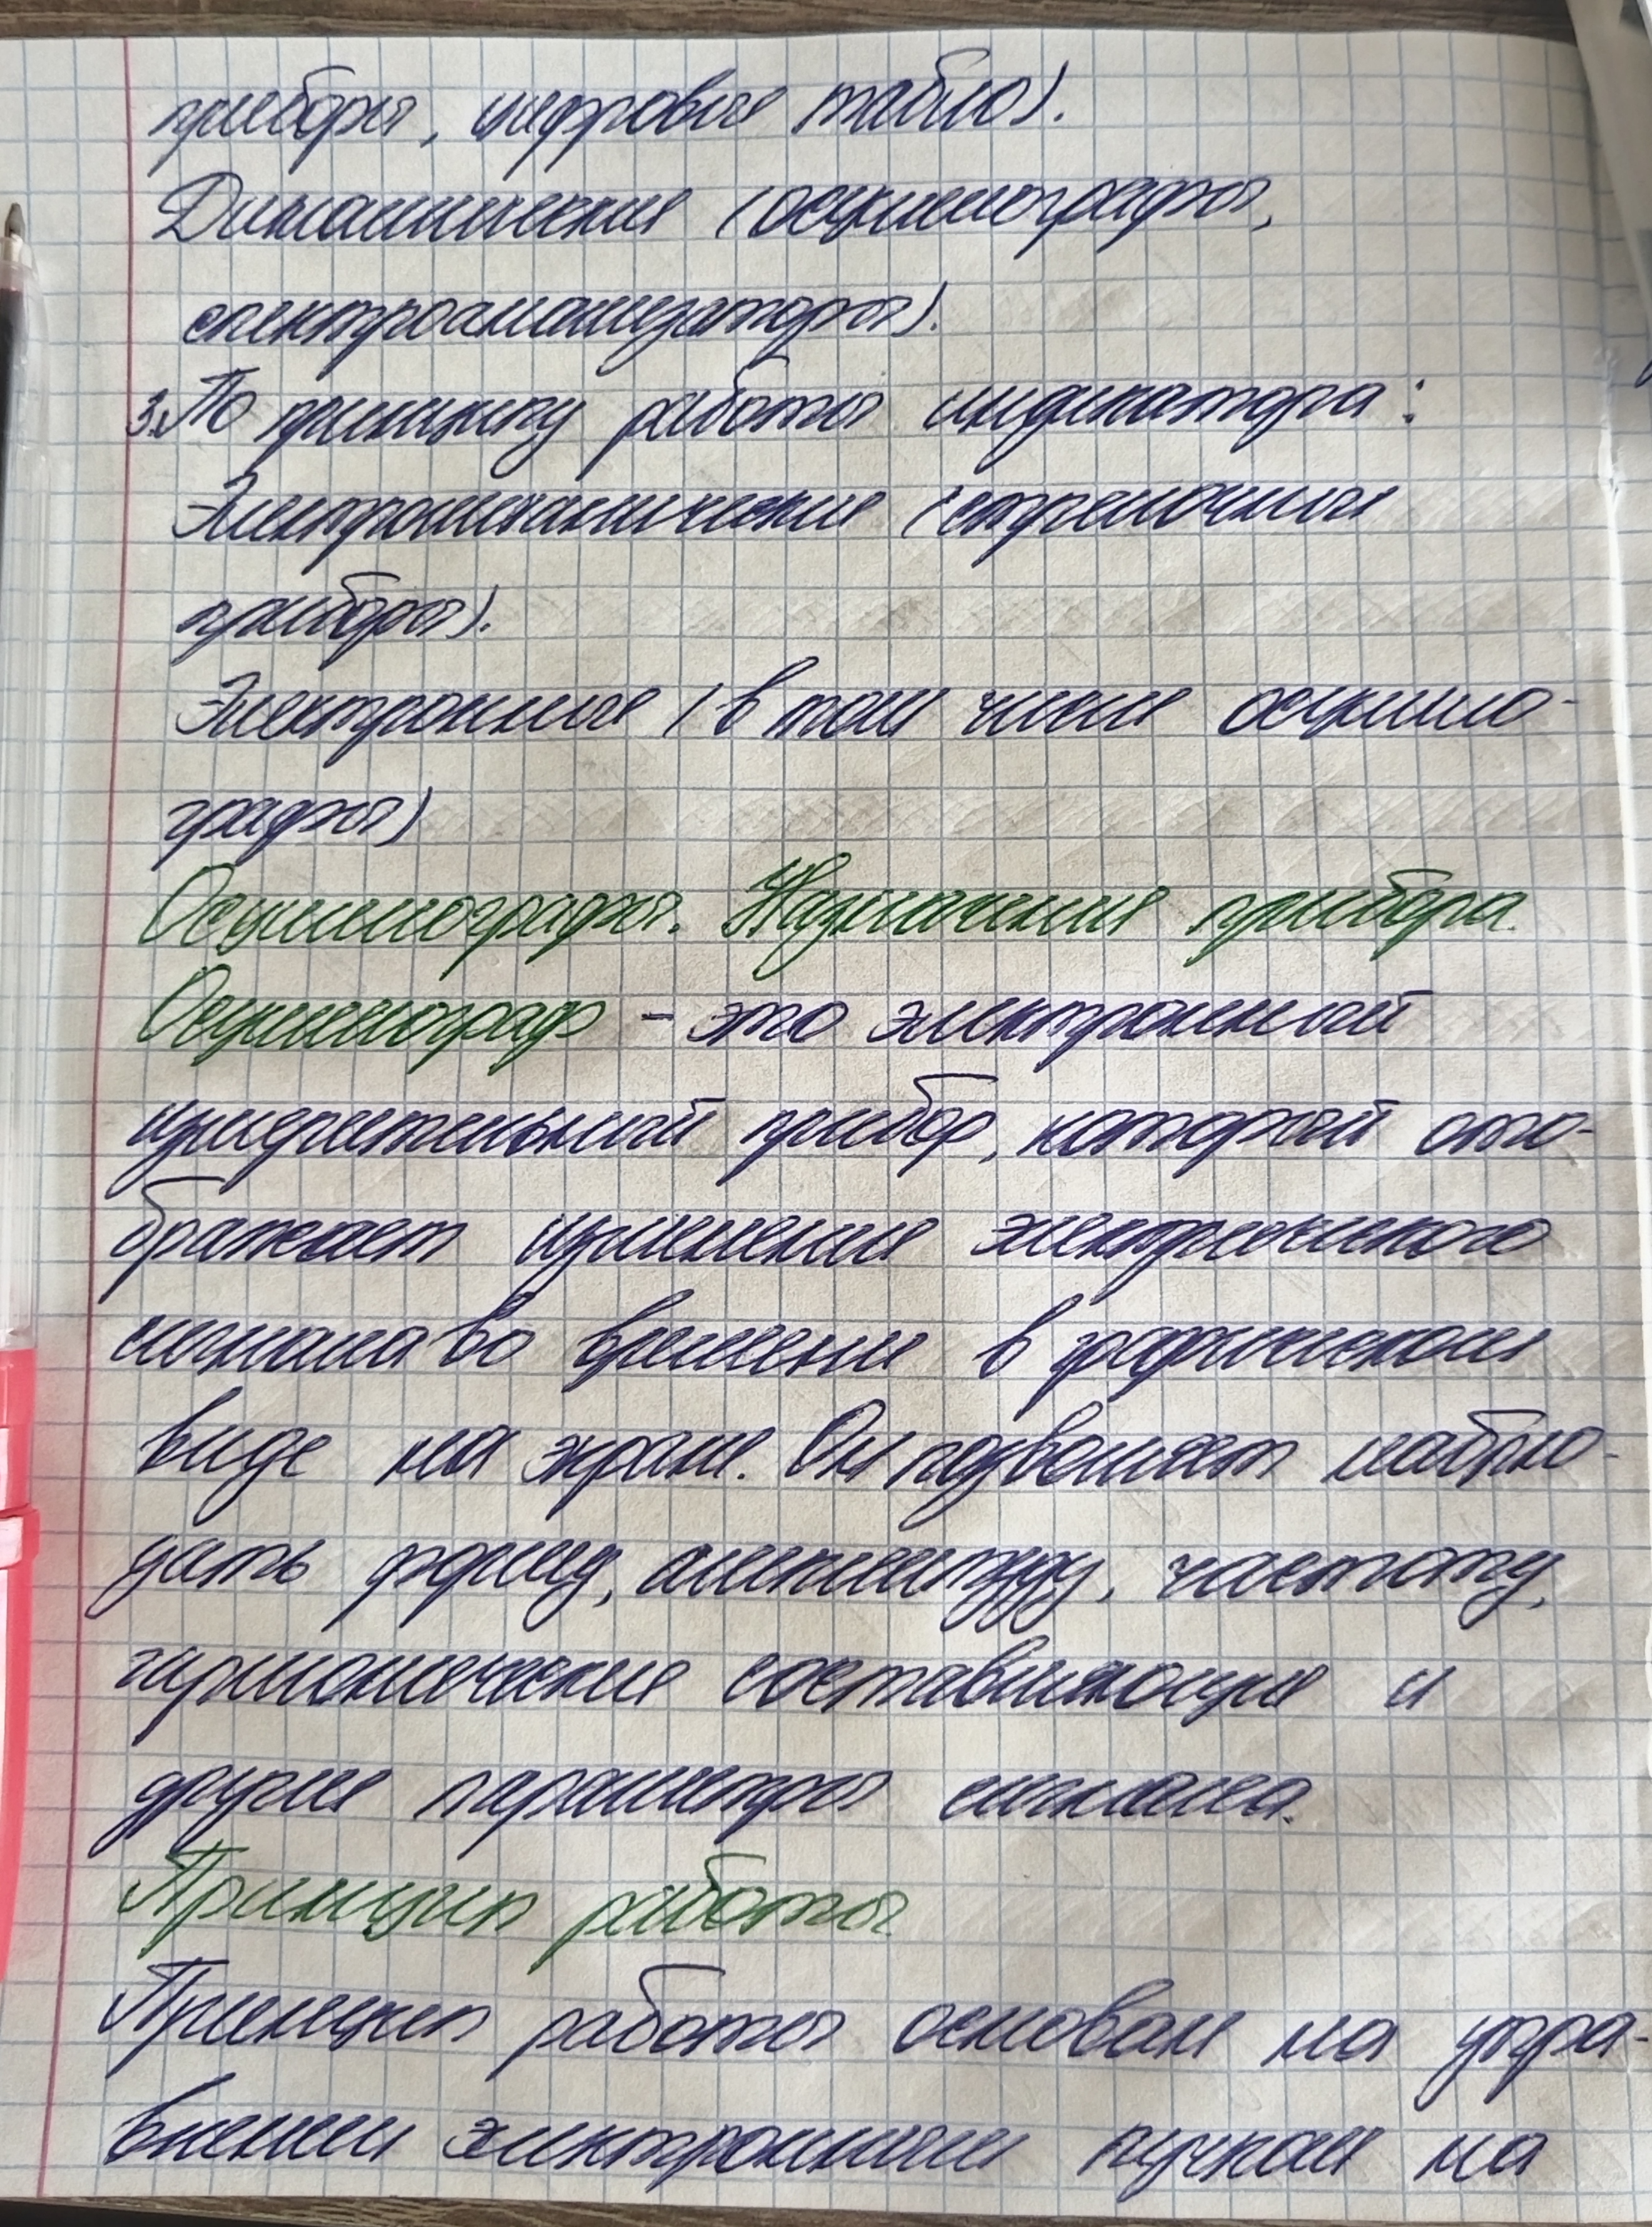 приборы, цифровые табло).
Динамические (осциллографы,
спектроанализаторы).
3. По принципу работы индикатора:
Электромеханические (стрелочные
приборы).
Электронные (в том числе осцилло-
графы)
Осциллографы. Назначения прибора.
Осциллограф - это электронный
измерительный прибор, который ото-
бражает изменения электрического
сигнала во времени в графическом
виде на экране. Он позволяет наблю-
дать форму, амплитуду, частоту,
гармонические составляющие и
другие параметры сигнала.
Принцип работы
Принцип работы основан на упра-
влении электронным пучком на